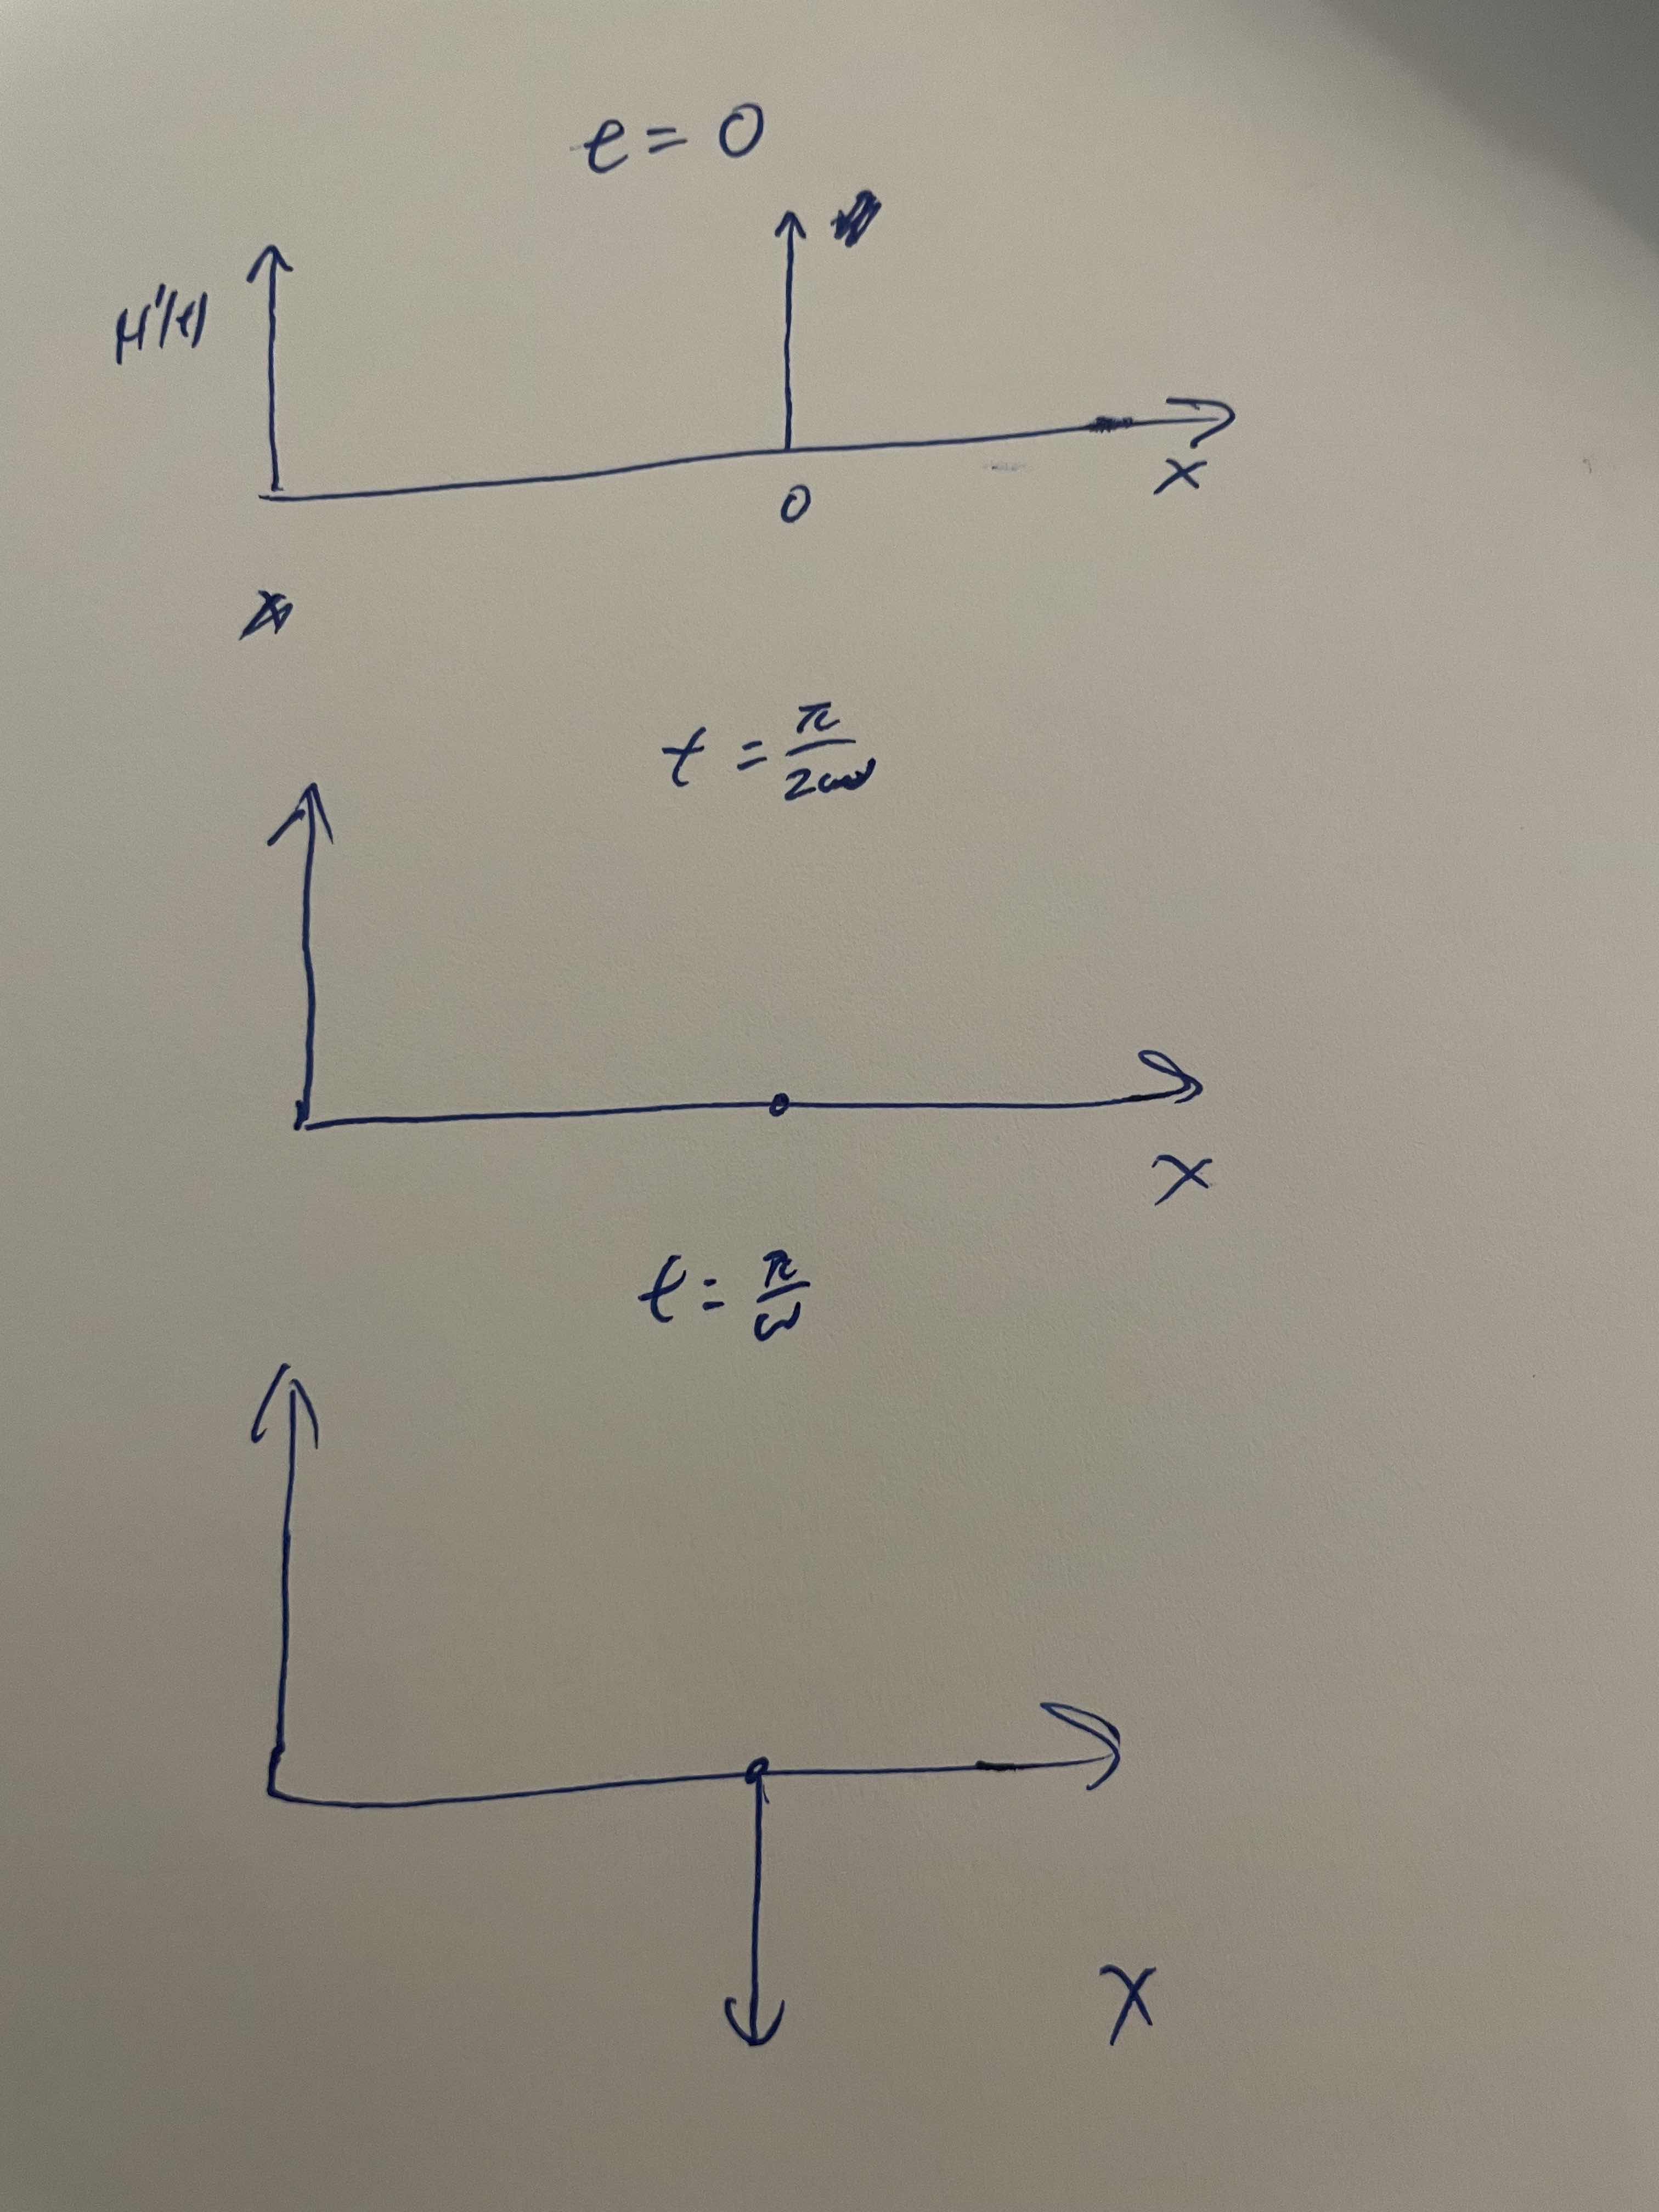 t = 0
H'(t)
0
x
t = π/2ω
x
t = π/ω
x